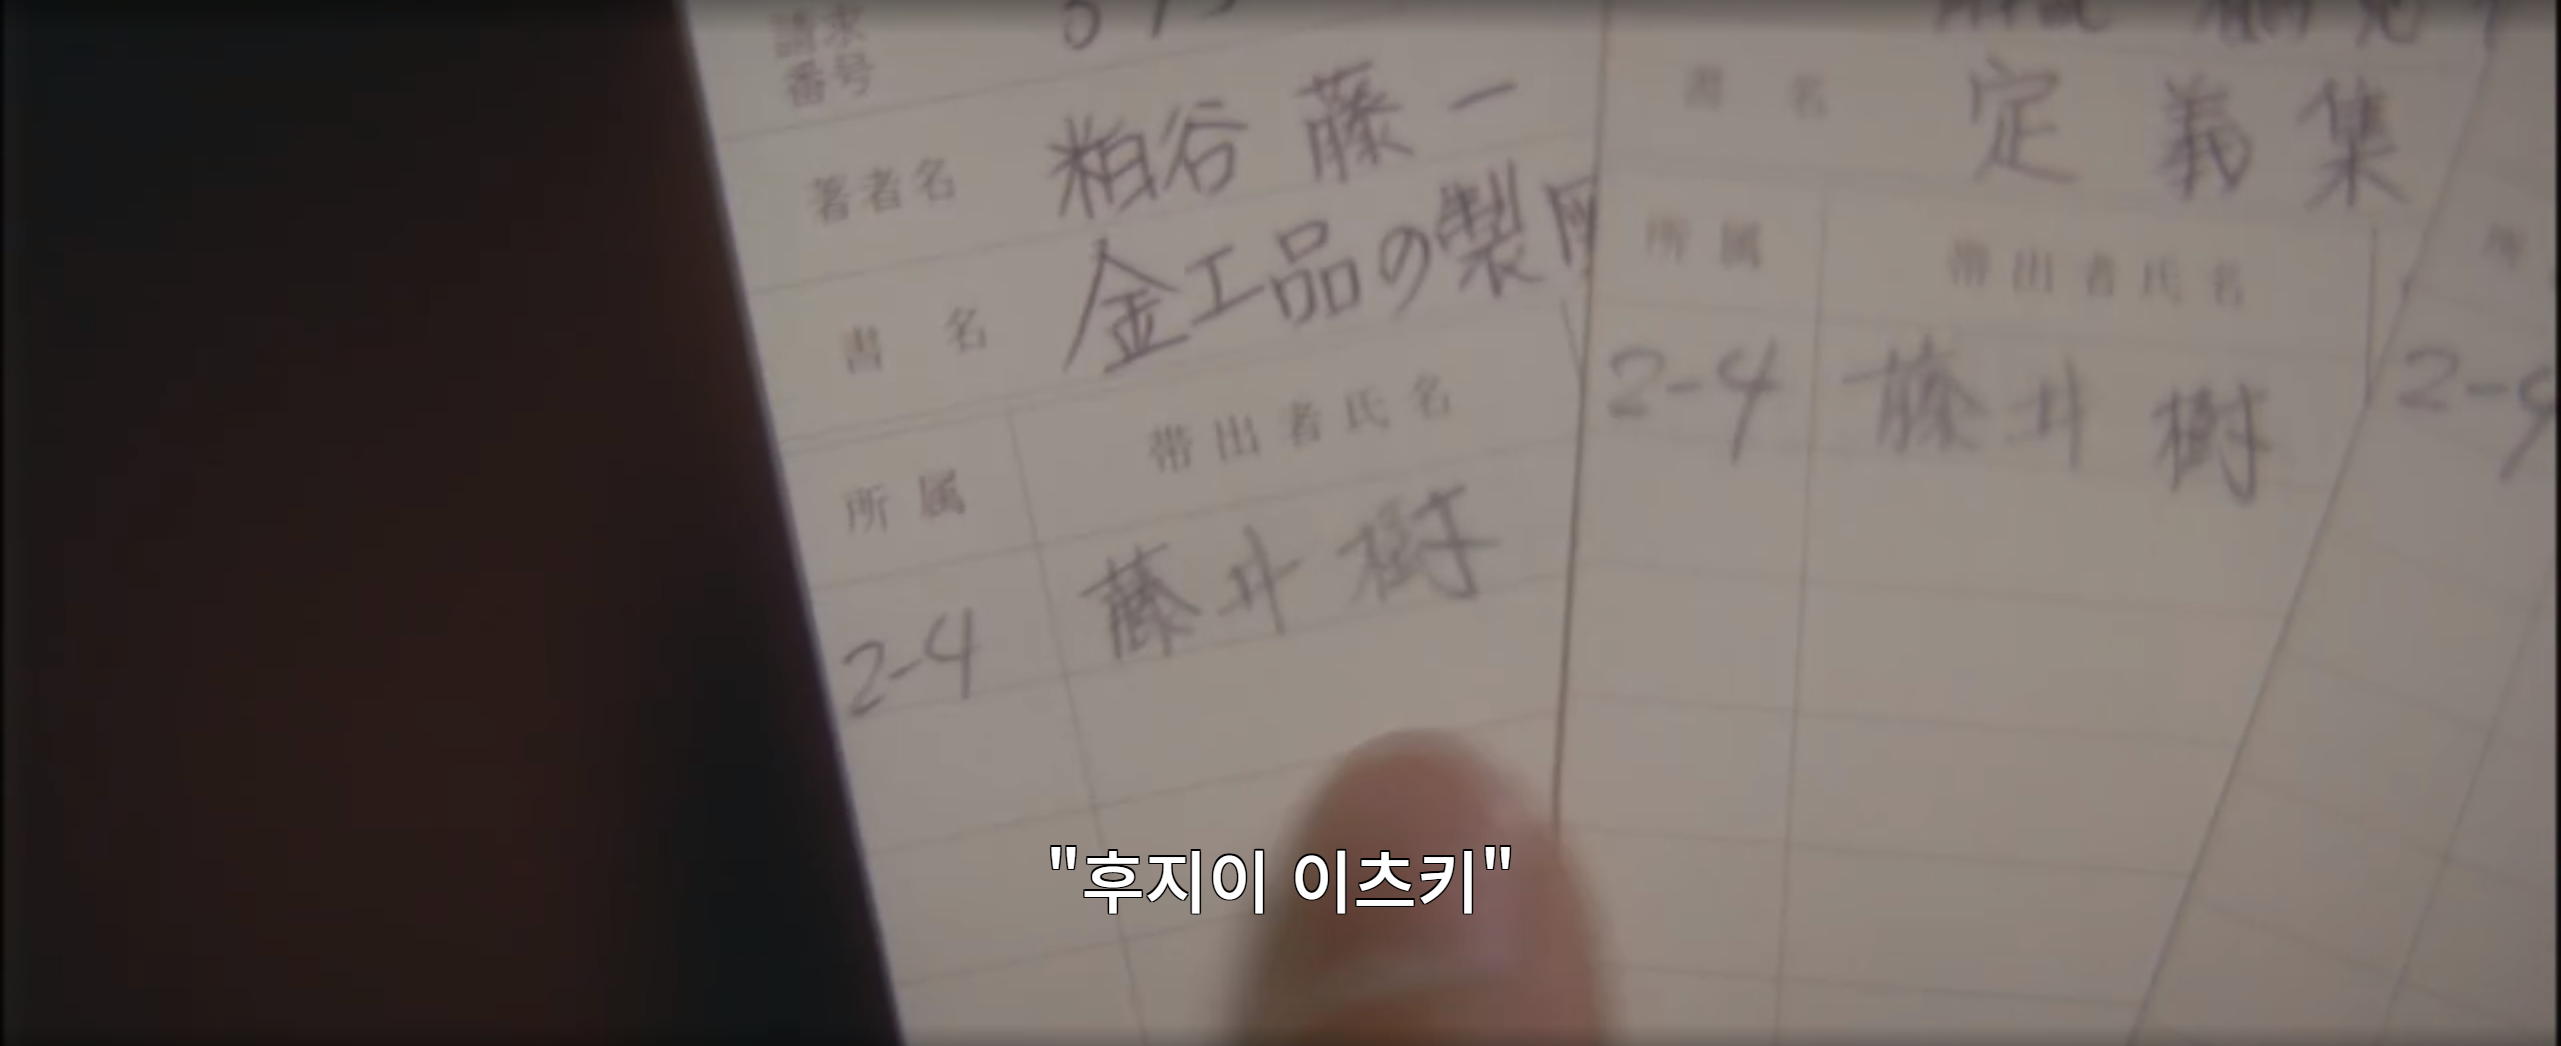 請求
番号
著者名 粕谷 藤一
書名 金工品の製
所属 帯出者氏名
2-4 藤井樹
書名 定義集
所属 帯出者氏名
2-4 藤井樹
"후지이 이츠키"